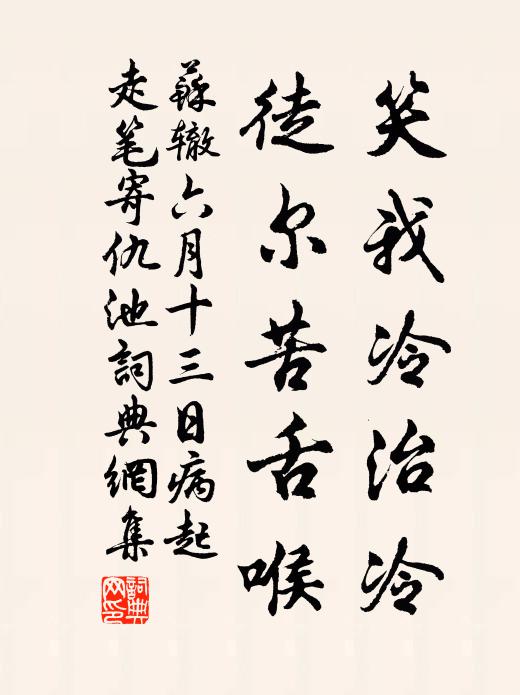 笑我冷治冷
徒尔苦舌喉
蘇辙六月十三日病起
走笔寄仇池詞典網集
詞典網印